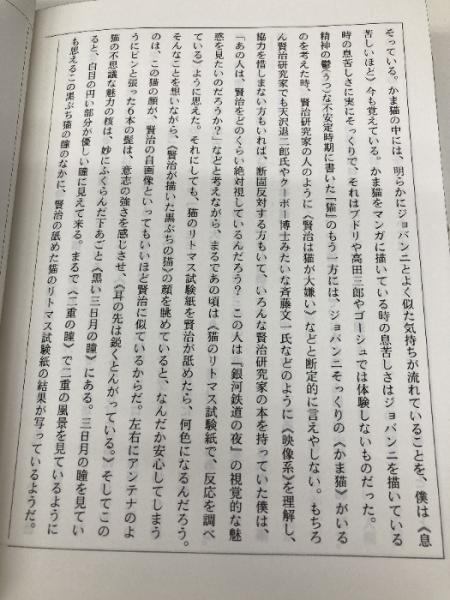 そっている。かま猫の中には、明らかにジョバンニとよく似た気持ちが流れていることを、僕は《息
苦しいほど》今も覚えている。かま猫をマンガに描いている時の息苦しさはジョバンニを描いている
時の息苦しさに実にそっくりで、それはブドリや高田三郎やゴーシュでは体験しないものだった。
精神の鬱(うつ)な不安定時期に書いた『猫』のもう一方には、ジョバンニそっくりの《かま猫》がいる
のを考えた時、賢治研究家の人のように《賢治は猫が大嫌い》などと断定的に言えやしない。もちろ
ん賢治研究家でも天沢退二郎氏やクーボー博士みたいな斉藤文一氏などのように《映像系》を理解し、
協力を惜しまない方もいれば、断固反対する方もいて、いろんな賢治研究家の本を持っていた僕は、
「あの人は、賢治をどのくらい絶対視しているんだろう? この人は『銀河鉄道の夜』の視覚的な魅
惑を見たいのだろうか?」などと考えながら、まるであの頃は《猫のリトマス試験紙で、反応を調べ
ている》ように思えた。それにしても、猫のリトマス試験紙を賢治が舐めたら、何色になるんだろう。
そんなことを想いながら、《賢治が描いた黒ぶちの猫》の顔を眺めていると、なんだか安心してしまう
のは、この猫の顔が、賢治の自画像といってもいいほど賢治に似ているからだ。左右にアンテナのよ
うにピンと張った6本の髭は、意志の強さを感じさせ、《耳の先は鋭くとんがっている。》そしてこの
猫の不思議な魅力の核は、妙にふくらんだ下あごと《黒い三日月の瞳》にある。三日月の瞳を見てい
ると、白目の円い部分が優しい瞳に見えて来る。まるで〈二重の瞳〉で二重の風景を見ているように
も思えるこの黒ぶち猫の瞳のなかに、賢治の舐めた猫のリトマス試験紙の結果が写っているようだ。